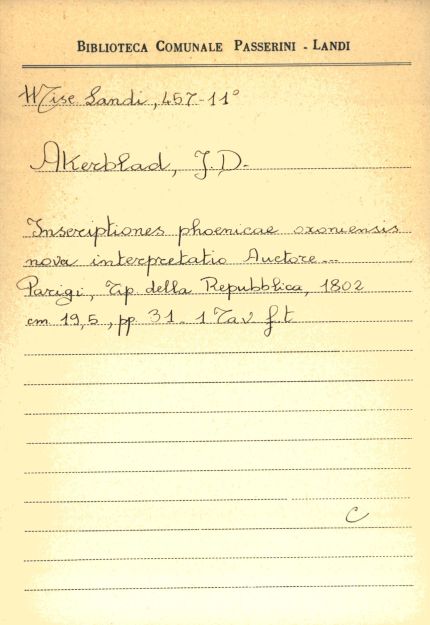 BIBLIOTECA COMUNALE PASSERINI - LANDI
Misc Landi, 457-11°
Akerblad, J.D.
Inscriptiones phoenicae oxoniensis
nova interpretatio Auctore...
Parigi, Tip della Repubblica, 1802
cm 19,5, pp 31. 1 Tav f.t
C